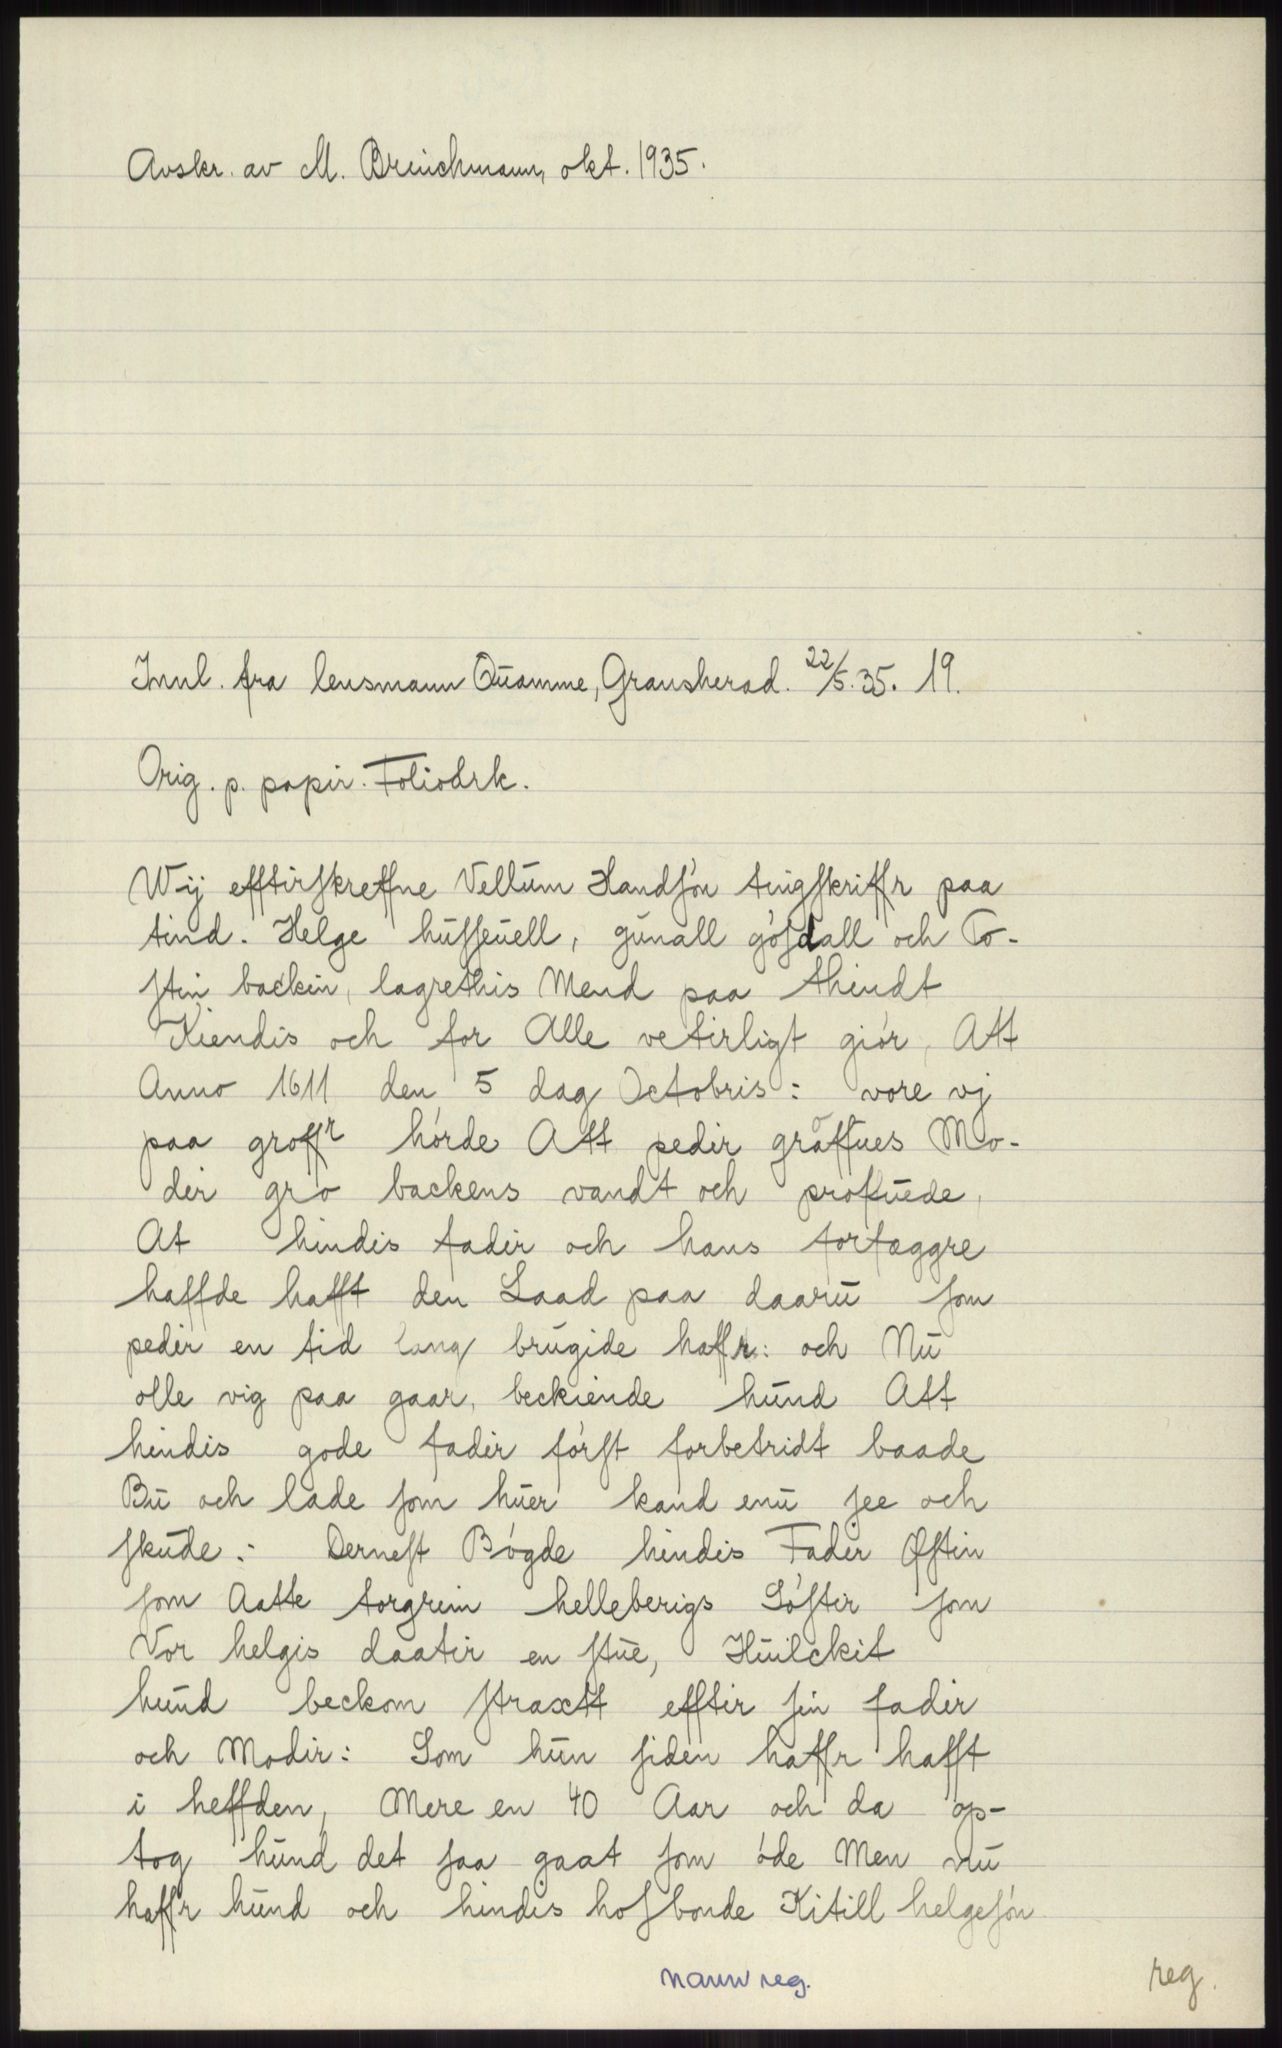 Avskr. av M. Brinchmann, okt. 1935.
Innl. fra lensmann Quamme, Gransherad. 22/5.35. 19.
Orig. p. papir. Foliodrk.
Wij efftirſkreffne Vellūm Handſón tingſkriffr paa
tind. Helge hūſſeūell, gūnall góſdall och To-
ſtin backin, lagrethis Mend paa thindt
Kiendis och for Alle vetirligt giór, Att
Anno 1611 den 5 dag Octobris: vore vj
paa groffr hórde Att pedir gråffūes Mo-
dir gro backens vandt och profūede,
At hindis fadir och hans forfæggre
haffde hafft den Laad paa daarū ſom
pedir en tid lang brūgide haffr: och Nū
olle vig paa gaar, beckiende hūnd Att
hindis gode fadir fórſt forbetridt baade
Bū och lade ſom hūer kand enū ſee och
ſkūde: Derneſt Bógde hindis Fadir Øſtin
ſom Aatte torgrim helleberigs Sóſtir ſom
Vor helgis daatir en ſtūe, Hūilckit
hūnd beckom ſtraxtt efftir ſin fadir
och Modir: Som hūn ſiden haffr hafft
i heffden, Mere en 40 Aar och da op-
tog hūnd det ſaa gaat ſom óde Men nū
haffr hūnd och hindis hoſbonde Kitill helgeſón
navnreg.
reg.